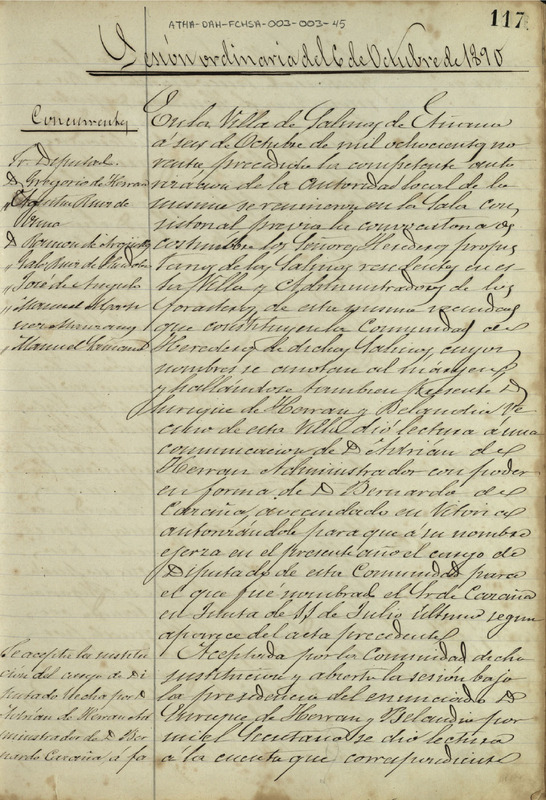 ATHA-DAH-FCHSA-003-003-45
117
Sesión ordinaria del 6 de Octubre de 1890
Concurrentes
Sr. Diputado.
D. Gregorio de Herran
Ruiz de
D. Ramon de
" José de Angulo
" Manuel Marti
nez
" Manuel
En la Villa de Salinas de Añana
á seis de Octubre de mil ochocientos no
venta, precedida la competente auto
rizacion de la autoridad local de la
misma se reunieron en la Sala con
sistorial previa la convocatoria de
costumbre los Señores Herederos propie
tarios de las Salinas residentes en es
ta Villa y Administradores de los
forasteros de esta misma vecindad
que constituyen la Comunidad de
Herederos de dichas Salinas cuyos
nombres se anotan al margen;
y hallándose tambien presente D.
Enrique de Herran y Belandia ve
cino de esta Villa dió lectura a una
comunicacion de D. Adrian de
Herran Administrador con poder
en forma de D. Bernardo de
Cázaña, avecindado en Vitoria
autorizándole para que á su nombre
ejerza en el presente año el cargo de
Diputado de esta Comunidad para
el que fue nombrado el Sr. de Cazaña
en Junta de 11 de Julio último segun
aparece del acta precedente.
Aceptada por la Comunidad dicha
sustitucion y abierta la sesion bajo
la presidencia del enunciado D.
Enrique de Herran y Belandia por
mi el Secretario se dió lectura
a la cuenta que correspondiente
Se acepta la sustitu
cion del cargo de Di
putado hecha por D.
Adrian de Herran Ad
ministrador de D. Ber
nardo Cazaña, á fa